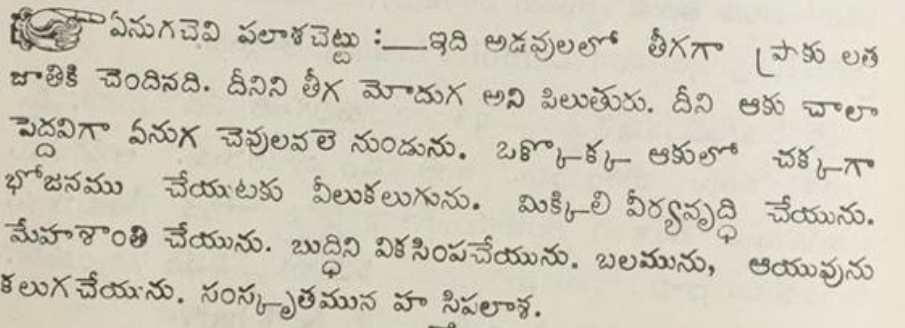 ఏనుగచెవి పలాశచెట్టు :—ఇది అడవులలో తీగగా ప్రాకు లత
జాతికి చెందినది. దీనిని తీగ మోదుగ అని పిలుతురు. దీని ఆకు చాలా
పెద్దవిగా ఏనుగ చెవులవలె నుండును. ఒక్కొక్క ఆకులో చక్కగా
భోజనము చేయుటకు వీలుకలుగును. మిక్కిలి వీర్యవృద్ధి చేయును.
మేహశాంతి చేయును. బుద్ధిని వికసింపచేయును. బలమును, ఆయువును
కలుగచేయును. సంస్కృతమున హ సిపలాశ.